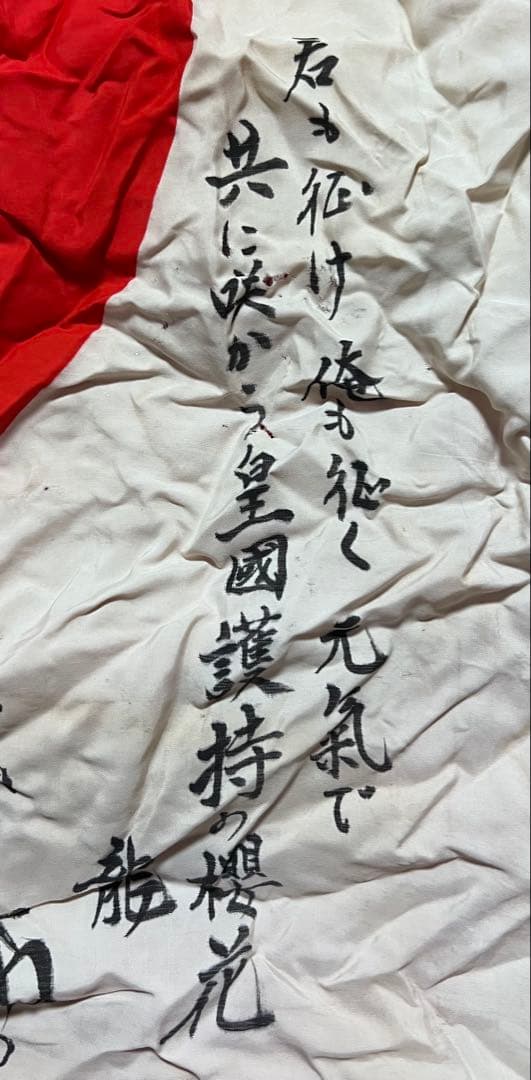 君も征け 俺も征く 元氣で
共に咲かう皇國護持の櫻花
龍